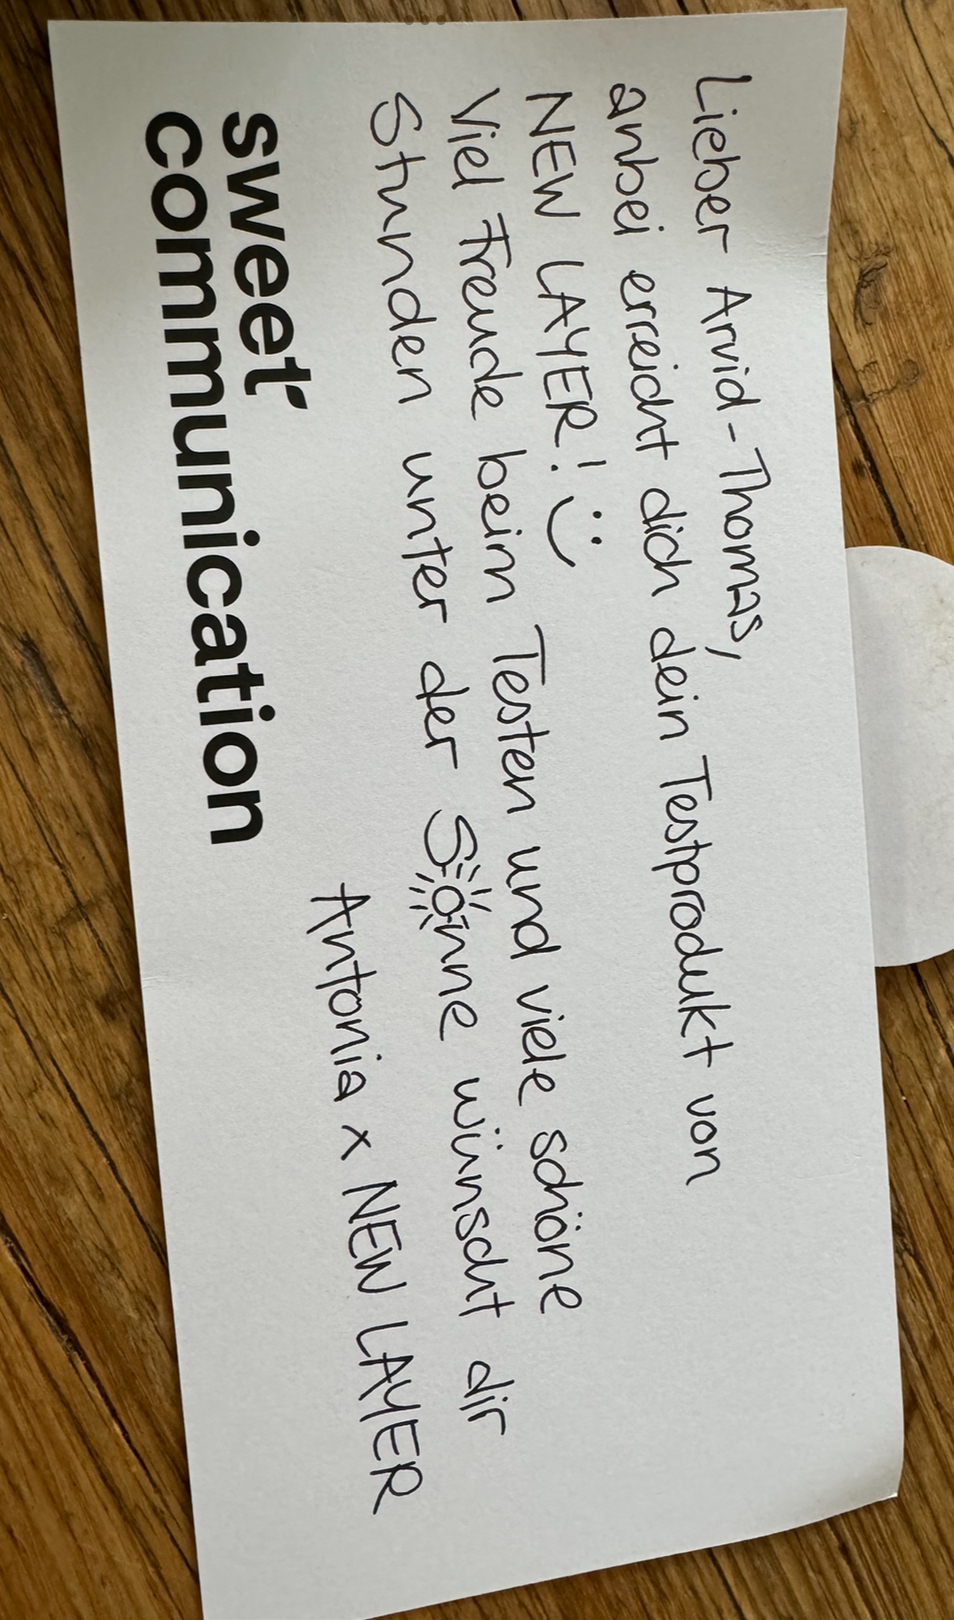 Lieber Arvid-Thomas,
anbei erreicht dich dein Testprodukt von
NEW LAYER! :)
Viel Freude beim Testen und viele schöne
Stunden unter der Sonne wünscht dir
Antonia x NEW LAYER
sweet
communication